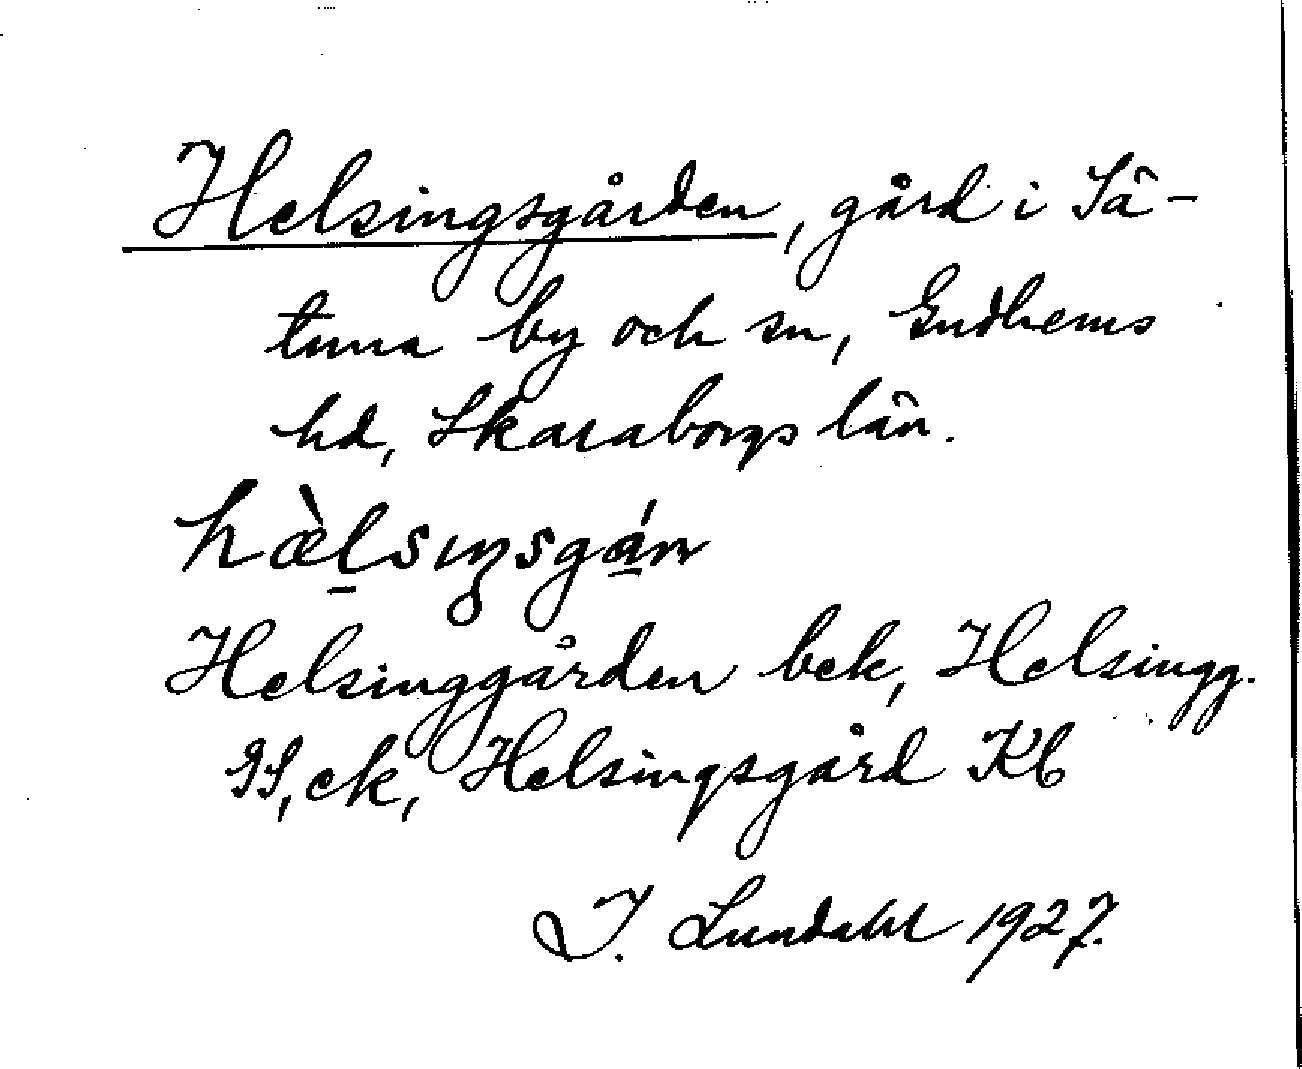 Helsingsgården, gård i Sä-
tuna by och sn, Gudhems
hd, Skaraborgs län.
hæ̀l̠sıŋsgá̠n
Helsinggården bek, Helsingg.
GS, ek, Helsingsgård Kb
I. Lundahl 1927.